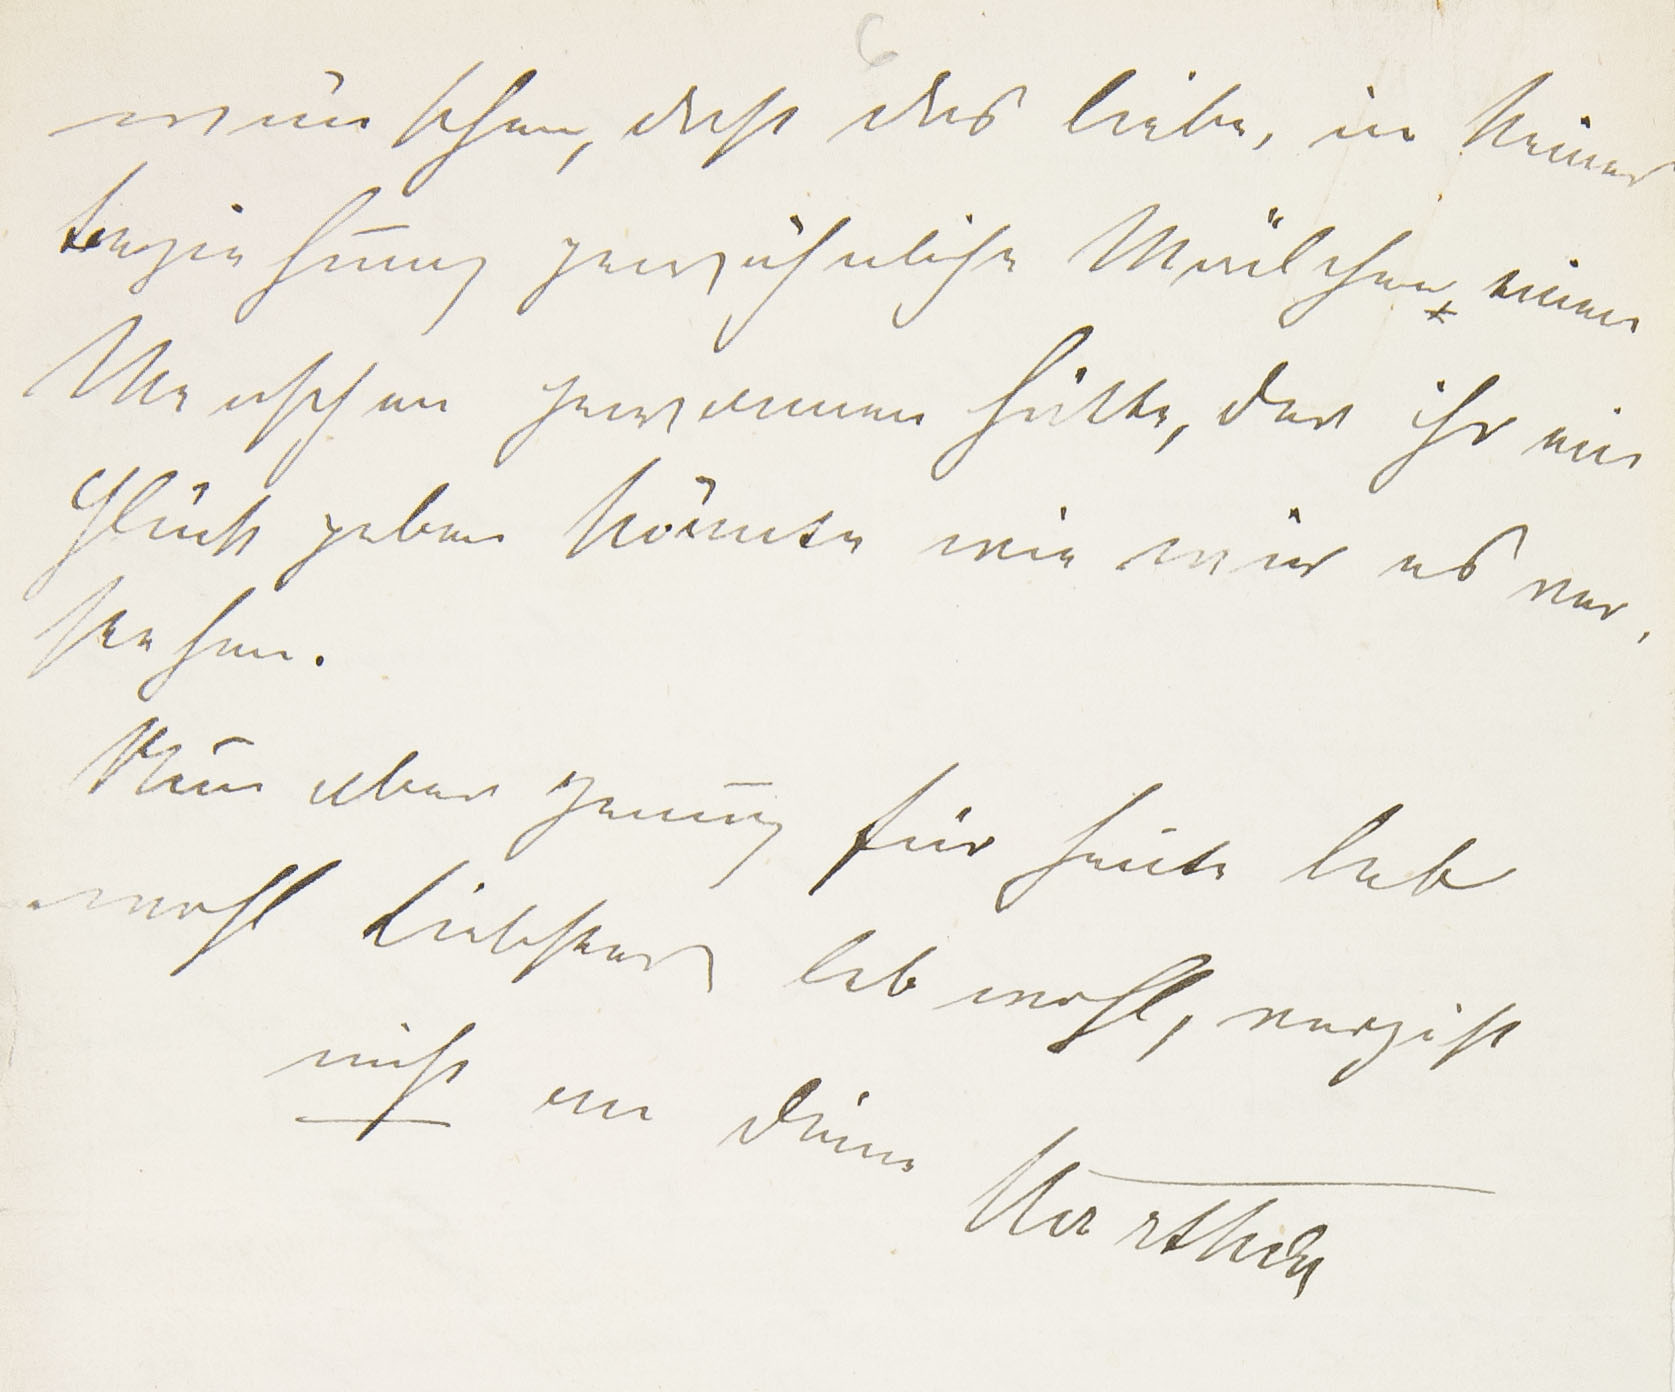 6
wünschen, daß das liebe, in keiner
beziehung gewöhnliche Mädchen, einen
Menschen gewonnen hätte, der ihr ein
Glück geben könnte wie wir es ver,
stehen.
Nun aber genug für heute leb
wohl Liebster leb wohl, vergiß
nicht an deine